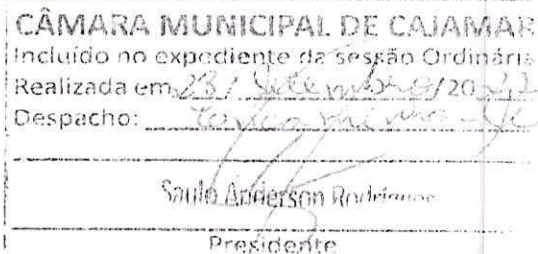 CÂMARA MUNICIPAL DE CAJAMAR
Incluído no expediente da sessão Ordinária
Realizada em 28/ Setembro/2022
Despacho: encaminha-se
Saulo Anderson Rodrigues
Presidente